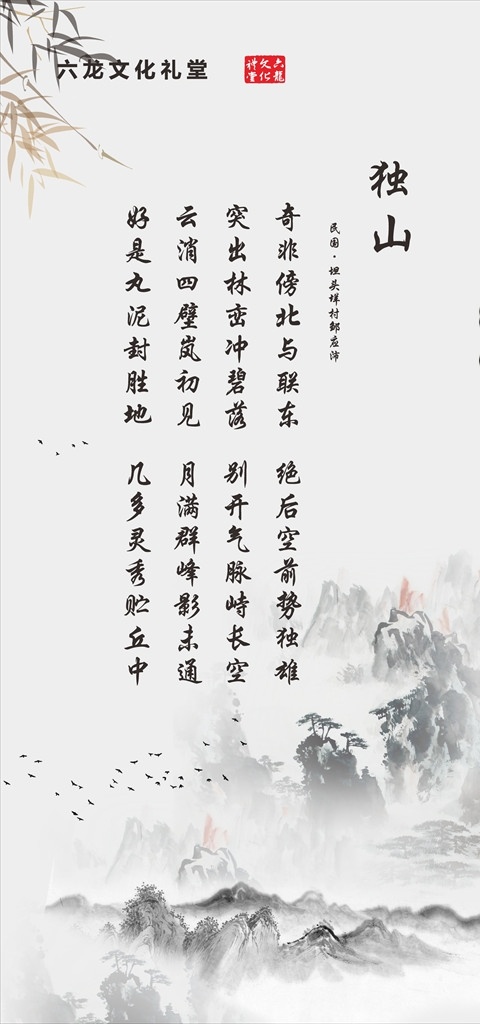 六龙文化礼堂
六龍文化礼堂
独山
民国·坦头垟村邹应沛
奇非傍北与联东 绝后空前势独雄
突出林峦冲碧落 别开气脉峙长空
云消四壁岚初见 月满群峰影未通
好是丸泥封胜地 几多灵秀贮丘中